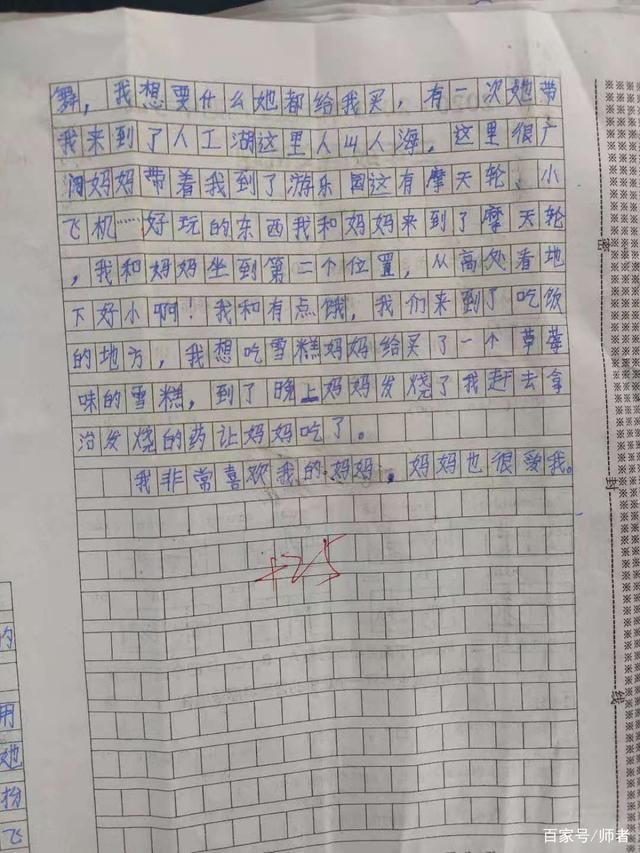 舞，我想要什么她都给我买，有一次她带
我来到了人工湖这里人山人海，这里很广
阔妈妈带着我到了游乐园这有摩天轮、小
飞机……好玩的东西我和妈妈来到了摩天轮
，我和妈妈坐到第二个位置，从高处看地
下好小啊！我和有点饿，我们来到了吃饭
的地方，我想吃雪糕妈妈给买了一个草莓
味的雪糕，到了晚上妈妈发烧了我赶去拿
治发烧的药让妈妈吃了。
我非常喜欢我的妈妈．妈妈也很爱我。
+25
的
用
她
扮
飞
密
封
线
百家号/师者